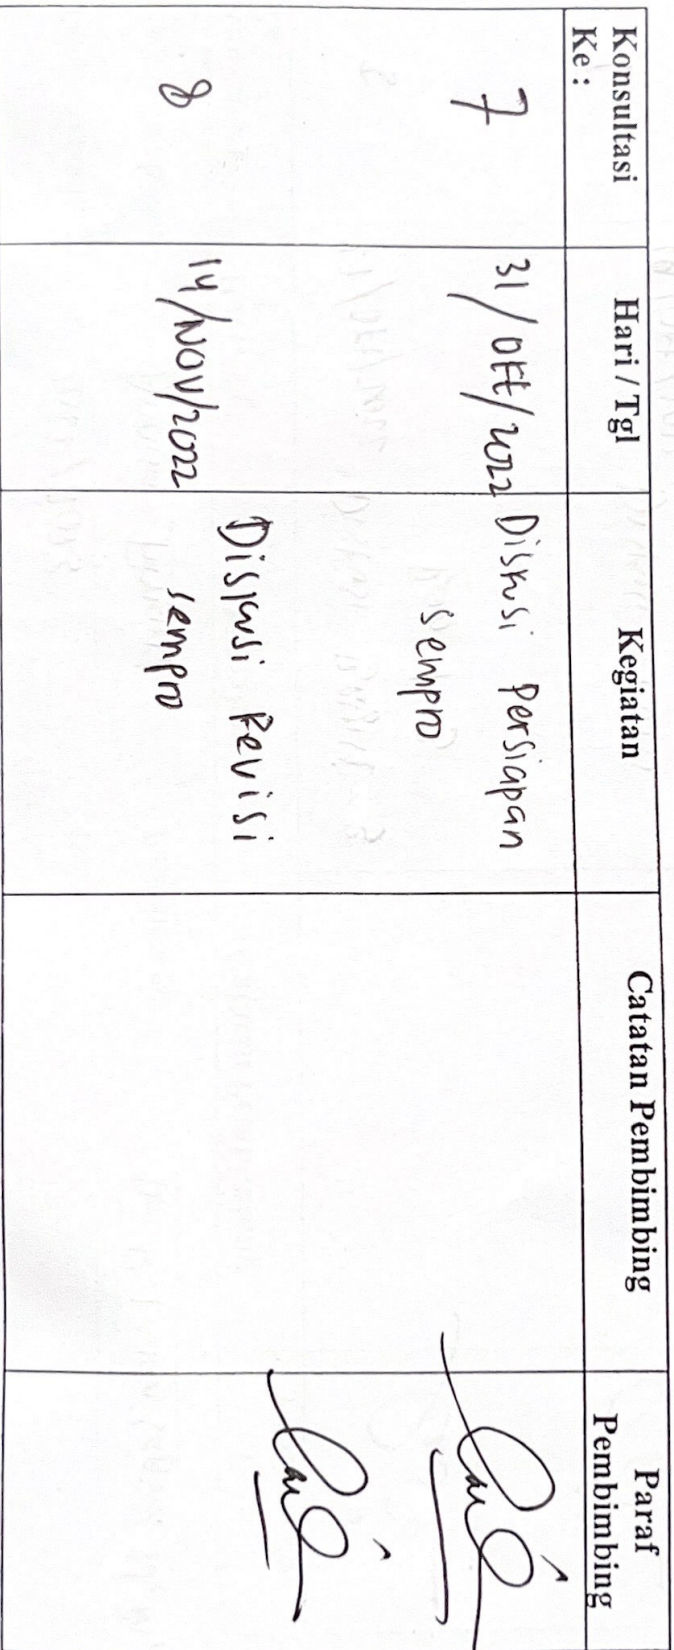 Konsultasi
Ke :
Hari / Tgl
Kegiatan
Catatan Pembimbing
Paraf
Pembimbing
7
31/okt/2022
Diskusi Persiapan
sempro
8
14/Nov/2022
Diskusi Revisi
sempro